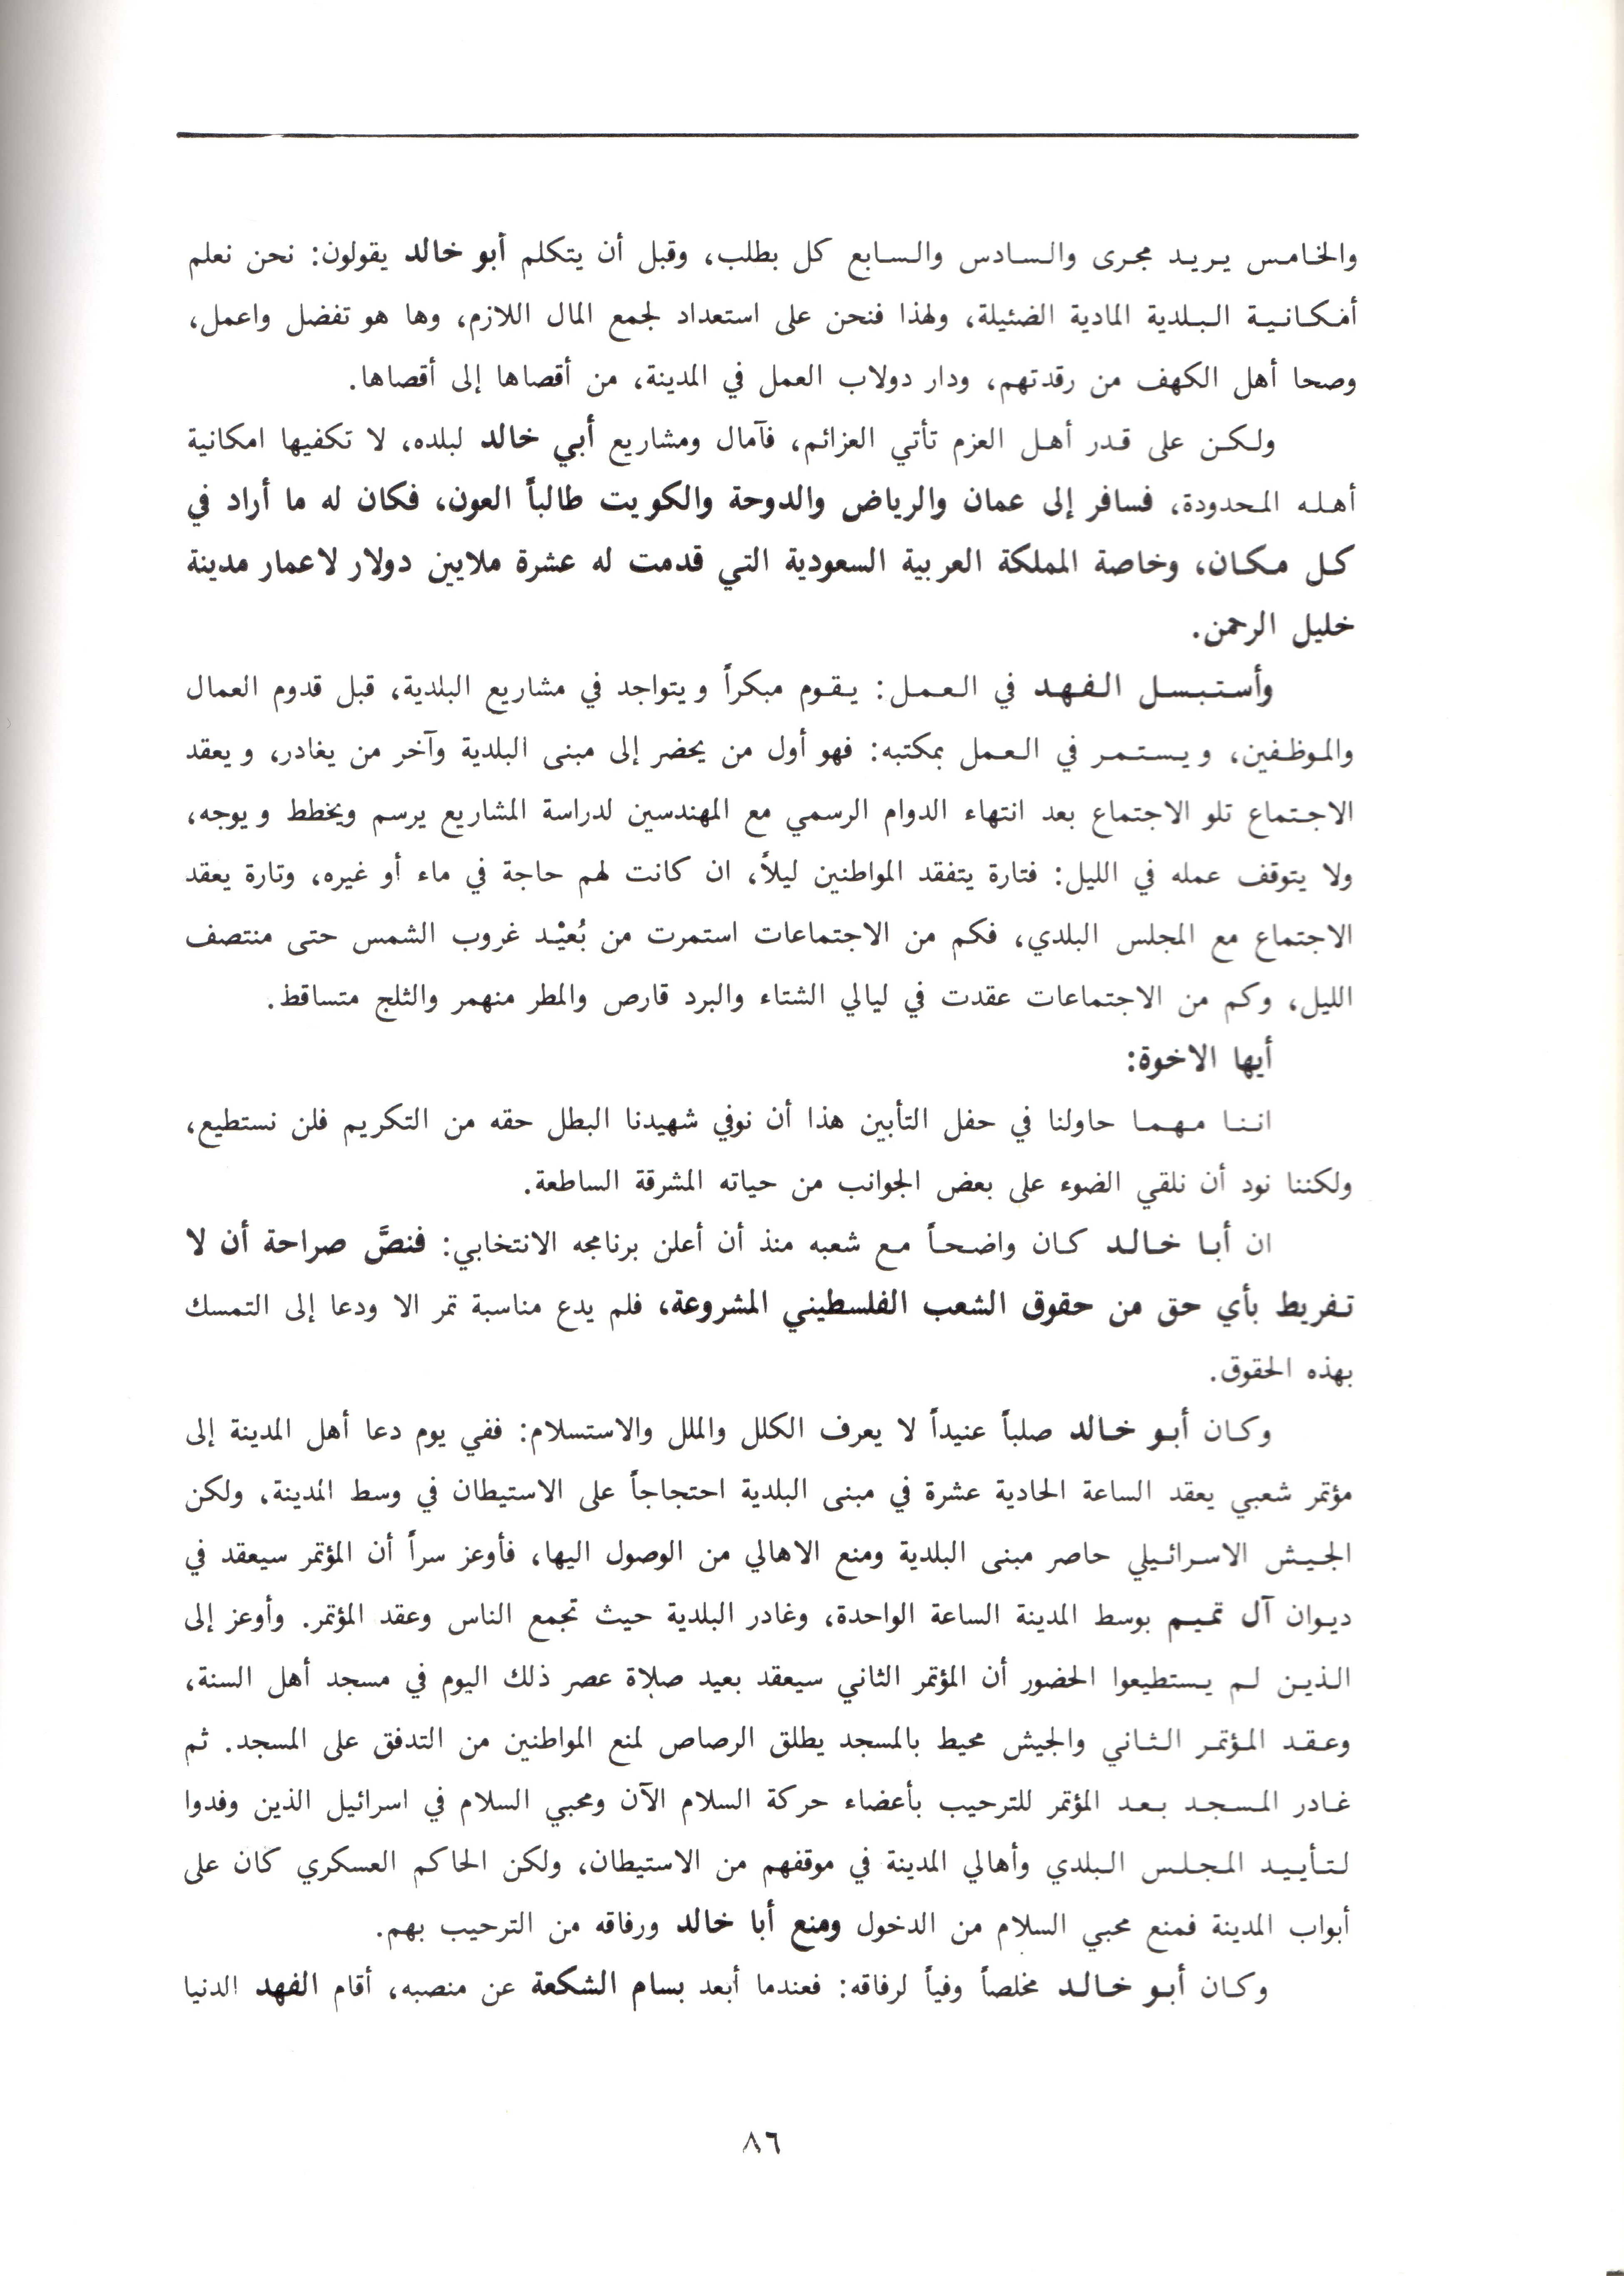 والخامس يريد مجرى والسادس والسابع كل بطلب، وقبل أن يتكلم أبو خالد يقولون: نحن نعلم
أمكانية البلدية المادية الضئيلة، ولهذا فنحن على استعداد لجمع المال اللازم، وها هو تفضل واعمل،
وصحا أهل الكهف من رقدتهم، ودار دولاب العمل في المدينة، من أقصاها إلى أقصاها.
ولكن على قدر أهل العزم تأتي العزائم، فآمال ومشاريع أبي خالد لبلده، لا تكفيها امكانية
أهله المحدودة، فسافر إلى عمان والرياض والدوحة والكويت طالباً العون، فكان له ما أراد في
كل مكان، وخاصة المملكة العربية السعودية التي قدمت له عشرة ملايين دولار لاعمار مدينة
خليل الرحمن.
وأستبسل الفهد في العمل: يقوم مبكراً ويتواجد في مشاريع البلدية، قبل قدوم العمال
والموظفين، ويستمر في العمل بمكتبه: فهو أول من يحضر إلى مبنى البلدية وآخر من يغادر، ويعقد
الاجتماع تلو الاجتماع بعد انتهاء الدوام الرسمي مع المهندسين لدراسة المشاريع يرسم ويخطط ويوجه،
ولا يتوقف عمله في الليل: فتارة يتفقد المواطنين ليلاً، ان كانت لهم حاجة في ماء أو غيره، وتارة يعقد
الاجتماع مع المجلس البلدي، فكم من الاجتماعات استمرت من بُعيْد غروب الشمس حتى منتصف
الليل، وكم من الاجتماعات عقدت في ليالي الشتاء والبرد قارص والمطر منهمر والثلج متساقط.
أيها الاخوة:
اننا مهما حاولنا في حفل التأبين هذا أن نوفي شهيدنا البطل حقه من التكريم فلن نستطيع،
ولكننا نود أن نلقي الضوء على بعض الجوانب من حياته المشرقة الساطعة.
ان أبا خالد كان واضحاً مع شعبه منذ أن أعلن برنامجه الانتخابي: فنصَّ صراحة أن لا
تفريط بأي حق من حقوق الشعب الفلسطيني المشروعة، فلم يدع مناسبة تمر الا ودعا إلى التمسك
بهذه الحقوق.
وكان أبو خالد صلباً عنيداً لا يعرف الكلل والملل والاستسلام: ففي يوم دعا أهل المدينة إلى
مؤتمر شعبي يعقد الساعة الحادية عشرة في مبنى البلدية احتجاجاً على الاستيطان في وسط المدينة، ولكن
الجيش الاسرائيلي حاصر مبنى البلدية ومنع الاهالي من الوصول اليها، فأوعز سراً أن المؤتمر سيعقد في
ديوان آل تميم بوسط المدينة الساعة الواحدة، وغادر البلدية حيث تجمع الناس وعقد المؤتمر. وأوعز إلى
الذين لم يستطيعوا الحضور أن المؤتمر الثاني سيعقد بعيد صلاة عصر ذلك اليوم في مسجد أهل السنة،
وعقد المؤتمر الثاني والجيش محيط بالمسجد يطلق الرصاص لمنع المواطنين من التدفق على المسجد. ثم
غادر المسجد بعد المؤتمر للترحيب بأعضاء حركة السلام الآن ومحبي السلام في اسرائيل الذين وفدوا
لتأييد المجلس البلدي وأهالي المدينة في موقفهم من الاستيطان، ولكن الحاكم العسكري كان على
أبواب المدينة فمنع محبي السلام من الدخول ومنع أبا خالد ورفاقه من الترحيب بهم.
وكان أبو خالد مخلصاً وفياً لرفاقه: فعندما أبعد بسام الشكعة عن منصبه، أقام الفهد الدنيا
٨٦